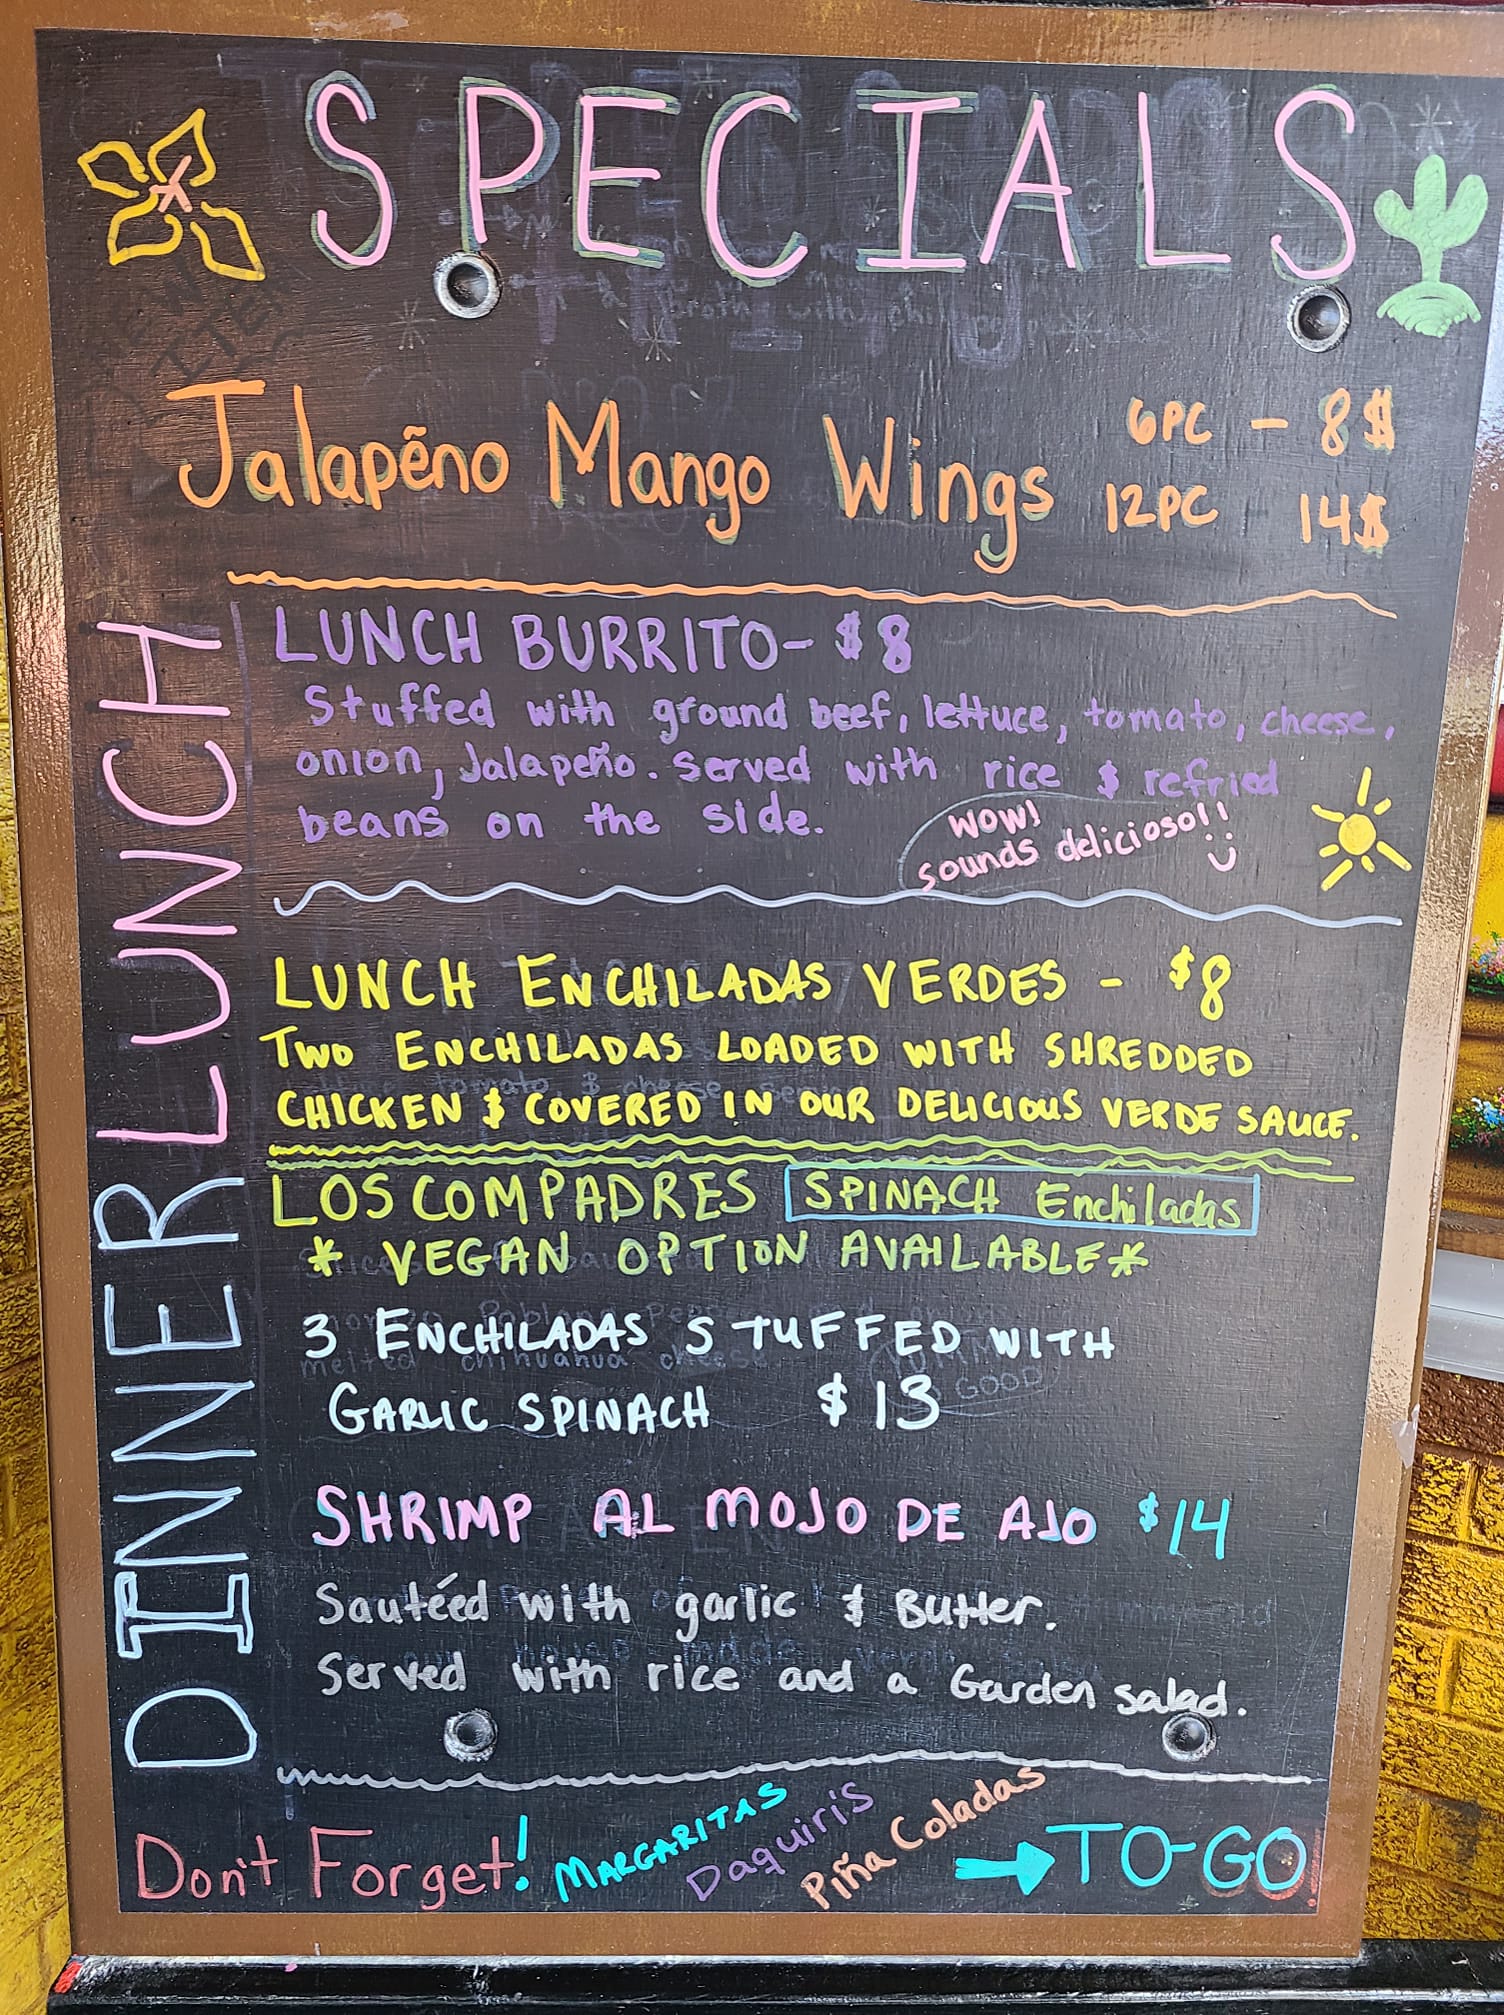 SPECIALS
NEW
ITEM
Jalapẽno Mango Wings
6PC - 8$
12PC 14$
LUNCH
LUNCH BURRITO - $8
Stuffed with ground beef, lettuce, tomato, cheese,
onion, Jalapeño. Served with rice & refried
beans on the side.
WOW!
sounds delicioso!!
LUNCH ENCHILADAS VERDES - $8
TWO ENCHILADAS LOADED WITH SHREDDED
CHICKEN & COVERED IN OUR DELICIOUS VERDE SAUCE.
DINNER
LOS COMPADRES SPINACH Enchiladas
* VEGAN OPTION AVAILABLE *
3 ENCHILADAS STUFFED WITH
GARLIC SPINACH $13
SHRIMP AL MOJO DE AJO $14
Sautéed with garlic & Butter.
Served with rice and a Garden salad.
Don't Forget! MARGARITAS Daquiris Piña Coladas → TO-GO!